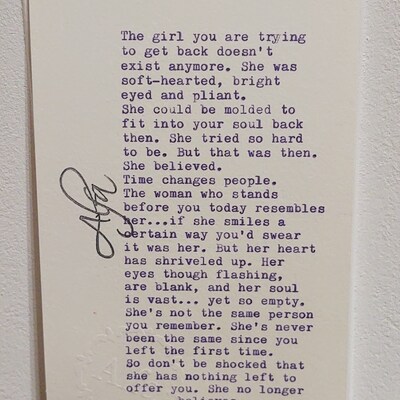 The girl you are trying
to get back doesn't
exist anymore. She was
soft-hearted, bright
eyed and pliant.
She could be molded to
fit into your soul back
then. She tried so hard
to be. But that was then.
She believed.
Time changes people.
The woman who stands
before you today resembles
her...if she smiles a
certain way you'd swear
it was her. But her heart
has shriveled up. Her
eyes though flashing,
are blank, and her soul
is vast... yet so empty.
She's not the same person
you remember. She's never
been the same since you
left the first time.
So don't be shocked that
she has nothing left to
offer you. She no longer
believes
Alfa